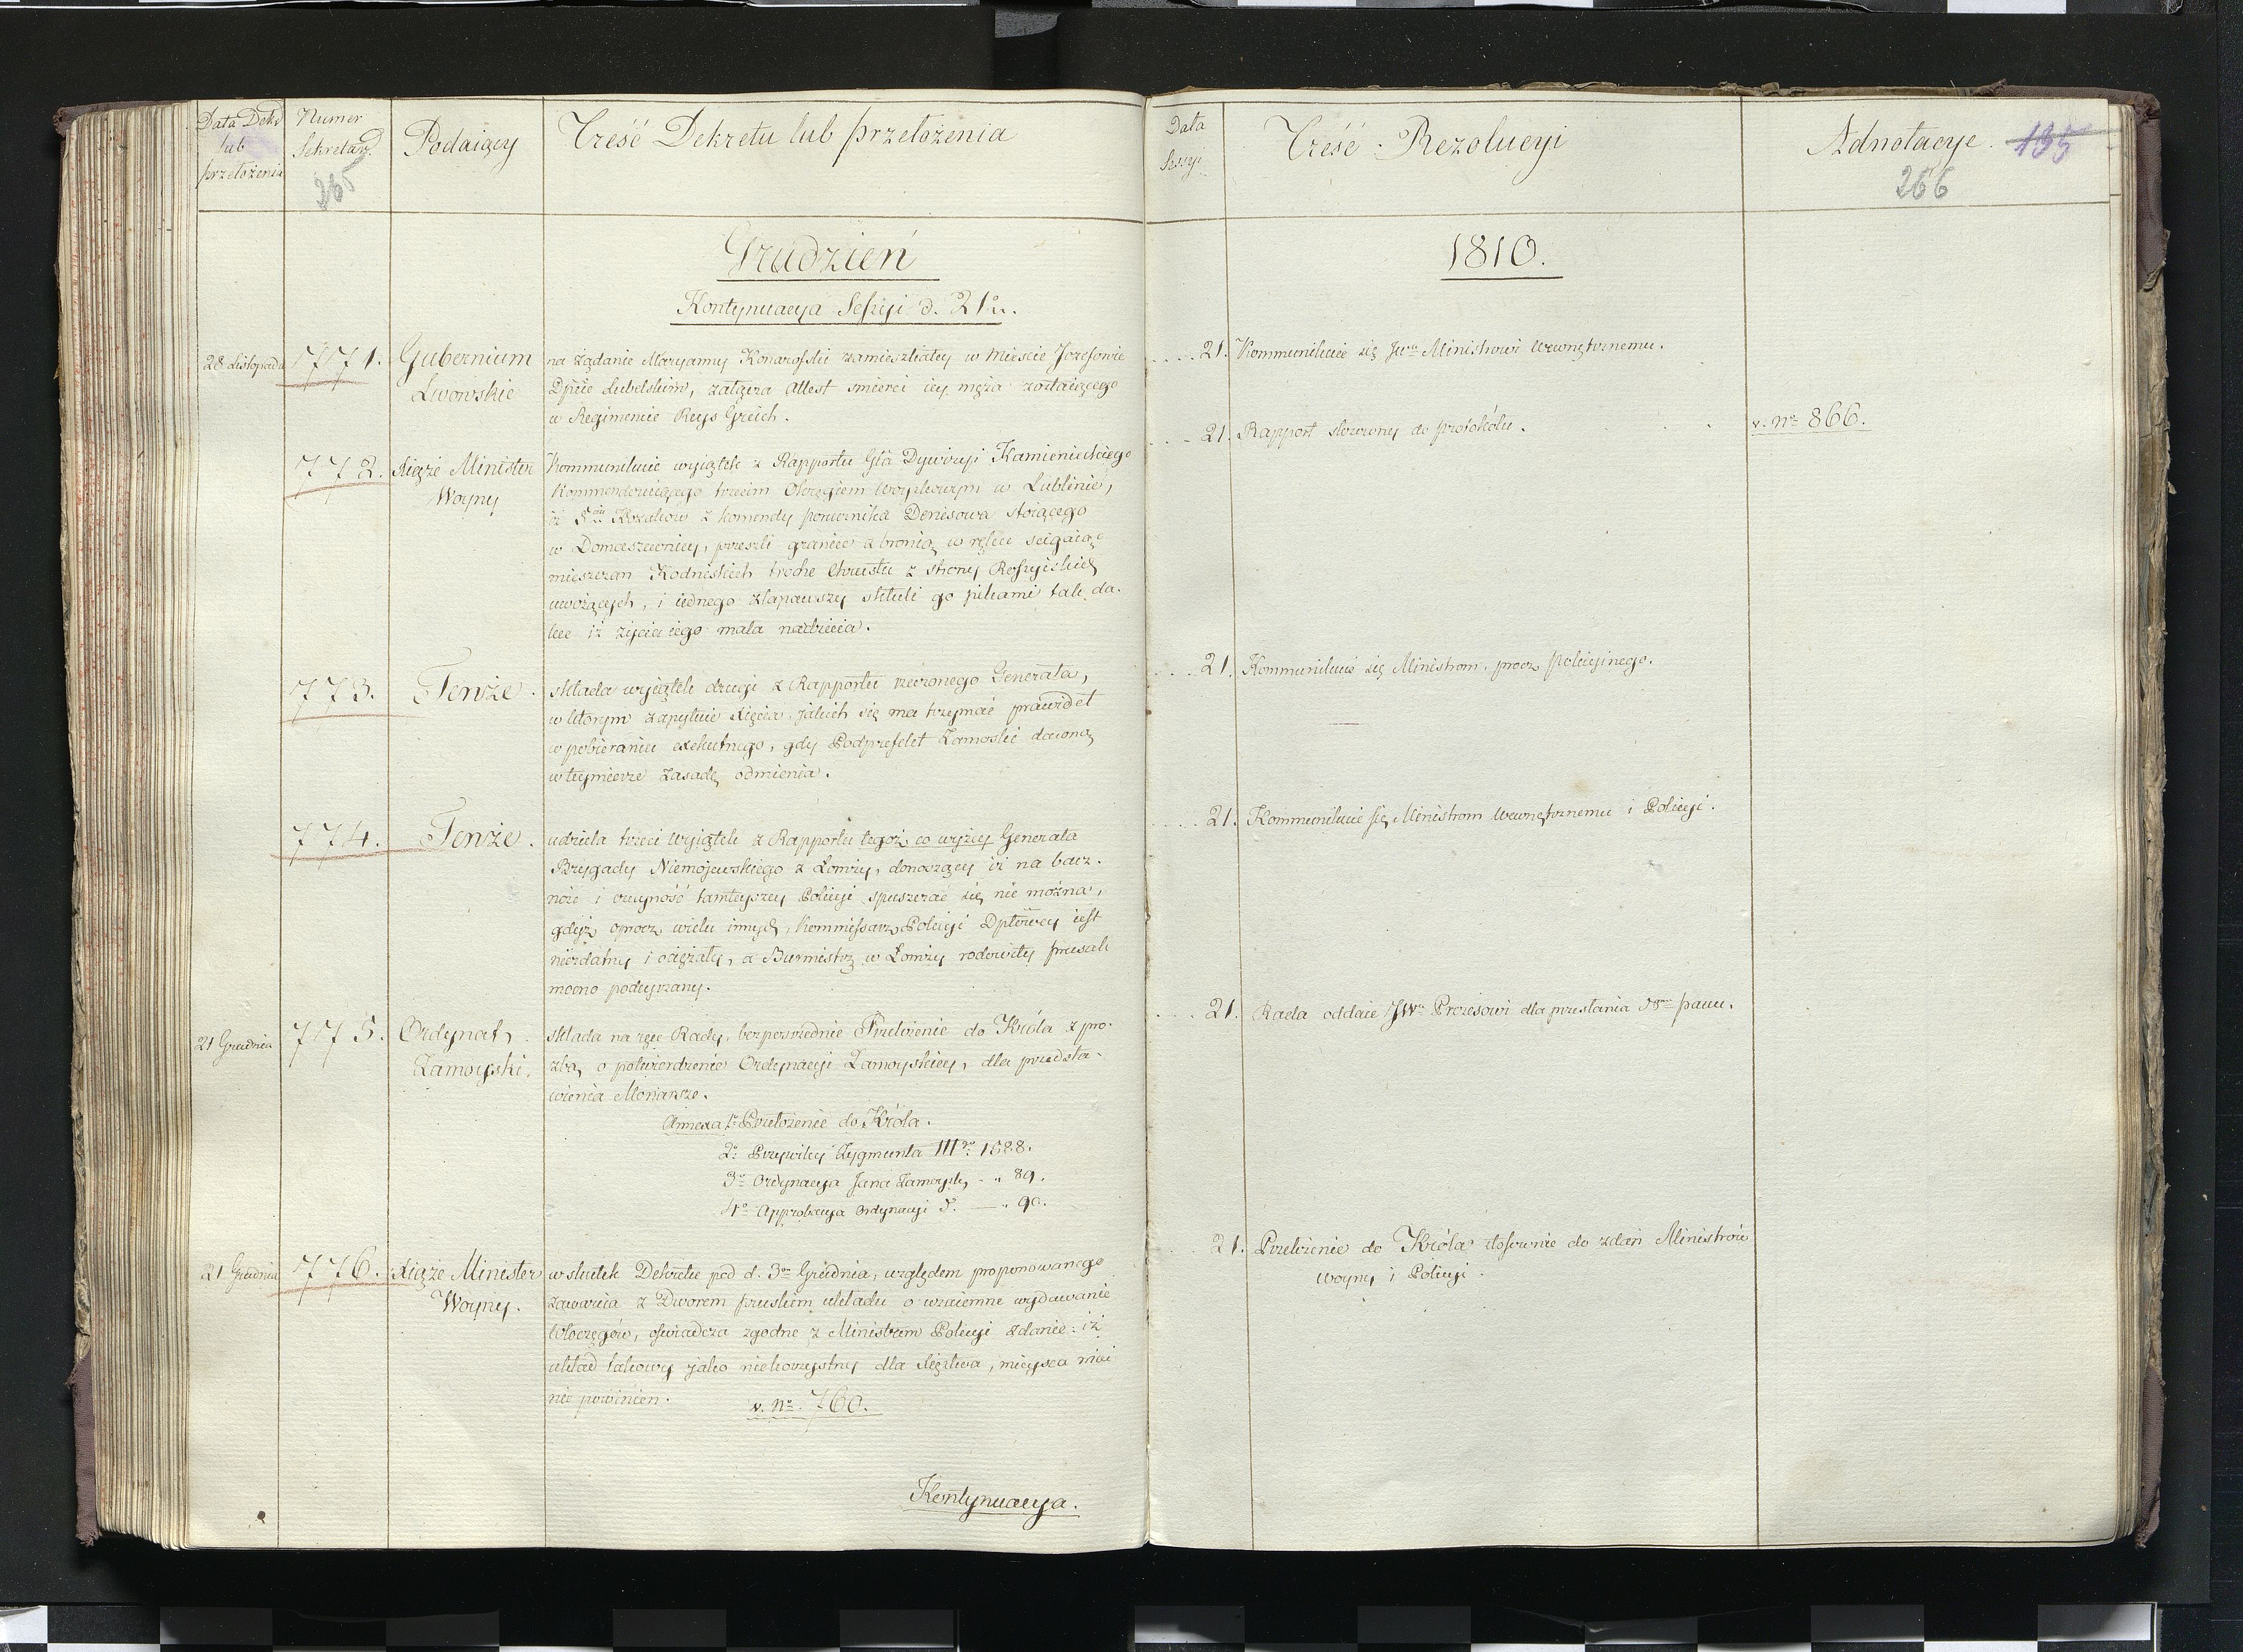 Data Dekr.
lub
przełożenia
Numer
Sekretarz.
265
Podaiący
Treść Dekretu lub przełożenia
Grudzień
Kontynuacya Sessyi d. 21º
28 Listopada
771.
Gubernium
Lwowskie
na żądanie Maryanny Konarofski zamieszkałey w Mieście Jozefowie
Dpcie Lubelskim, załącza Attest smierci iey męża zostaiącego
w Regimencie Reys Greich.
772.
Xiąże Minister
Woyny
Kommunikuie wyiątek z Rapportu Gła Dywizyi Kamienieckiego
Kommenderuiącego trzecim Okręgiem Woyskowym w Lublinie,
iż 5ciu Kozaków z komendy porucznika Denisowa stoiącego
w Domaszewnicy, przeszli granicę z bronią w ręku scigaiąc
mieszczan Kodnskich trochę Chrustu z strony Rossyiskiey
uwożących, i iednego złapawszy skłuli go pikami tak da-
lece iż życia iego mała nadzieia.
773.
Tenże.
składa wyiątek drugi z Rapportu rzeczonego Generała,
w ktorym zapytuie Xięcia, jakich się ma trzymać prawideł
w pobieraniu exekutnego, gdy Podprefekt Zamoski dawną
w tey mierze zasadę odmienia.
774.
Tenże.
udziela trzeci wyiątek z Rapportu tegoż co wyżey Generała
Brygady Niemojewskiego z Łomży, donoszący iż na bacz-
ność i czuyność tamteyszey Policyi spuszczać się nie można,
gdyż oprocz wielu innych, Kommissarz Policyi Dptowey iest
niezdatny i ociężały, a Burmistrz w Łomży rodowity prusak
mocno podeyrzany.
21 Grudnia
775.
Ordynat
Zamoyski.
składa na ręce Rady, bezpośrednie Przełożenie do Króla z pro-
zbą o potwierdzenie Ordynacyi Zamoyskiey, dla przedsta-
wienia Monarsze.
Annexa 1º Przełożenie do Króla.
2º Przywiley Zygmunta IIIgo 1588.
3º Ordynacya Jana Zamoysk. - " 89.
4º Approbacya Ordynacyi d. — " 90.
21 Grudnia
776.
Xiąże Minister
Woyny.
w skutek Dekretu pod d. 3m Grudnia, względem proponowanego
zawarcia z Dworem pruskim układu o wzaiemne wydawanie
Włoczęgów, oświadcza zgodne z Ministrem Policyi zdanie: iż
układ takowy jako niekorzystny dla Xięstwa, mieysca mieć
nie powinien.
v. Nº 760.
Kontynuacya.
Data
Sessyi
Treść Rezolucyi
Adnotacye.
135
266
1810.
.... 21. Kommunikuie się JWu Ministrowi Wewnętrznemu.
.... 21. Rapport złożony do protokółu.
v. Nº 866.
.... 21. Kommunikuie się Ministrom, procz Policyinego.
.... 21. Kommunikuie się Ministrom Wewnętrznemu i Policyi.
.... 21. Rada oddaie JWu Prezesowi dla przesłania Nmu panu.
21. Przełożenie do Króla stosownie do zdań Ministrów
Woyny i Policyi.